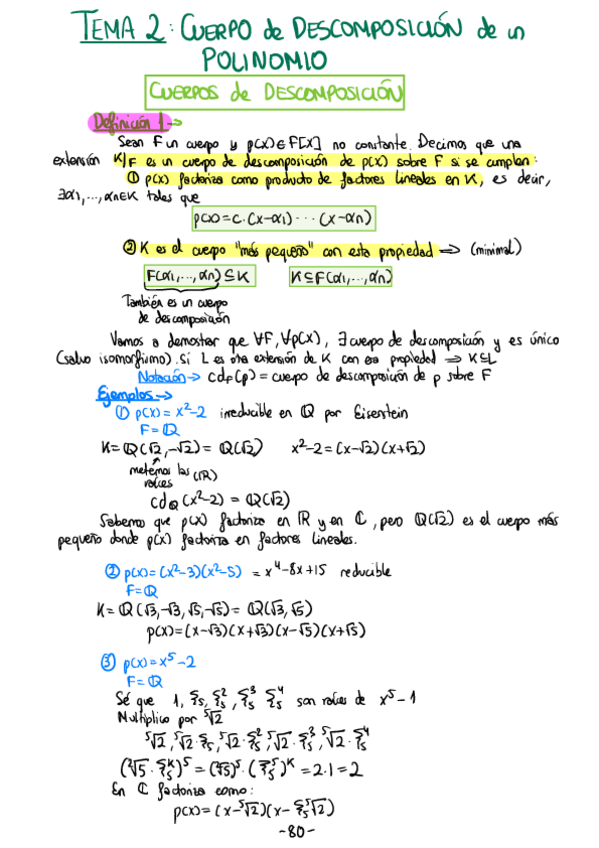 TEMA 2: CUERPO de DESCOMPOSICIÓN de un
POLINOMIO
CUERPOS de DESCOMPOSICIÓN
Definición 1 →
Sean F un cuerpo y p(x) ∈ F[x] no constante. Decimos que una
extensión K/F es un cuerpo de descomposición de p(x) sobre F si se cumplen:
① p(x) factoriza como producto de factores lineales en K, es decir,
∃α1, ..., αn∈K tales que
p(x) = c·(x-α1)· ··· (x-αn)
② K es el cuerpo "más pequeño" con esta propiedad ⇒ (minimal)
F(α1, ..., αn) ⊆ K K ⊆ F(α1, ..., αn)
También es un cuerpo
de descomposición
Vamos a demostrar que ∀F, ∀p(x), ∃ cuerpo de descomposición y es único
(salvo isomorfismo). Si L es otra extensión de K con esa propiedad ⇒ K⊆L
Notación → cdF(p) = cuerpo de descomposición de p sobre F
Ejemplos →
① p(x) = x²-2 irreducible en ℚ por Eisenstein
F = ℚ
K = ℚ(√2, -√2) = ℚ(√2) x²-2 = (x-√2)(x+√2)
metemos las (ℝ)
raíces
cdℚ(x²-2) = ℚ(√2)
Sabemos que p(x) factoriza en ℝ y en ℂ, pero ℚ(√2) es el cuerpo más
pequeño donde p(x) factoriza en factores lineales.
② p(x) = (x²-3)(x²-5) = x⁴-8x+15 reducible
F = ℚ
K = ℚ(√3, -√3, √5, -√5) = ℚ(√3, √5)
p(x) = (x-√3)(x+√3)(x-√5)(x+√5)
③ p(x) = x⁵-2
F = ℚ
Sé que 1, ξ5, ξ5², ξ5³, ξ5⁴ son raíces de x⁵-1
Multiplico por ⁵√2
⁵√2, ⁵√2·ξ5, ⁵√2·ξ5², ⁵√2·ξ5³, ⁵√2·ξ5⁴
(²√5·ξ5ᴷ)⁵ = (⁵√5)⁵·(ξ5⁵)ᴷ = 2·1 = 2
En ℂ factoriza como:
p(x) = (x-⁵√2)(x-ξ5⁵√2)
-80-